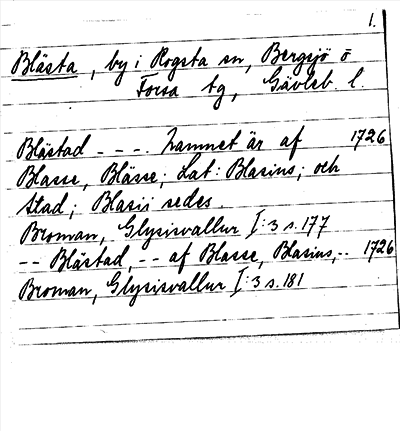 1.
Blästa, by i Rogsta sn, Bergsjö o
Forsa tg, Gävleb. l.
Blästad - - - . Namnet är af 1726
Blasse, Blässe; Lat: Blasius; och
Stad; Blasii sedes.
Broman, Glysisvallur I:3 s. 177
-- Blästad, -- af Blasse, Blasius, -- 1726
Broman, Glysisvallur I:3 s. 181